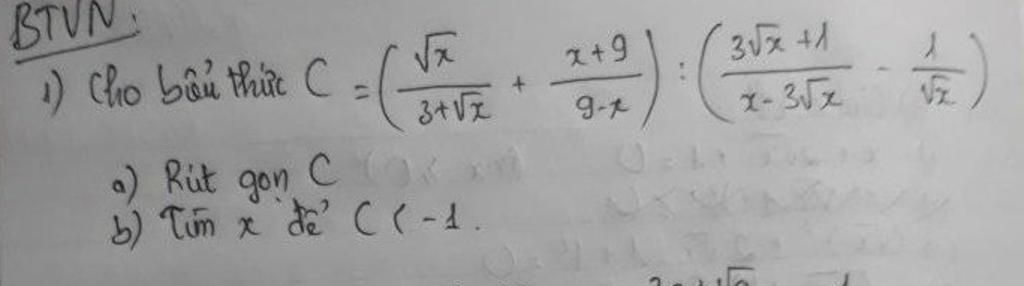 BTVN:
1) Cho biểu thức C = (√x/(3+√x) + (x+9)/(9-x)) : ((3√x+1)/(x-3√x) - 1/√x)
a) Rút gọn C
b) Tìm x để C < -1.